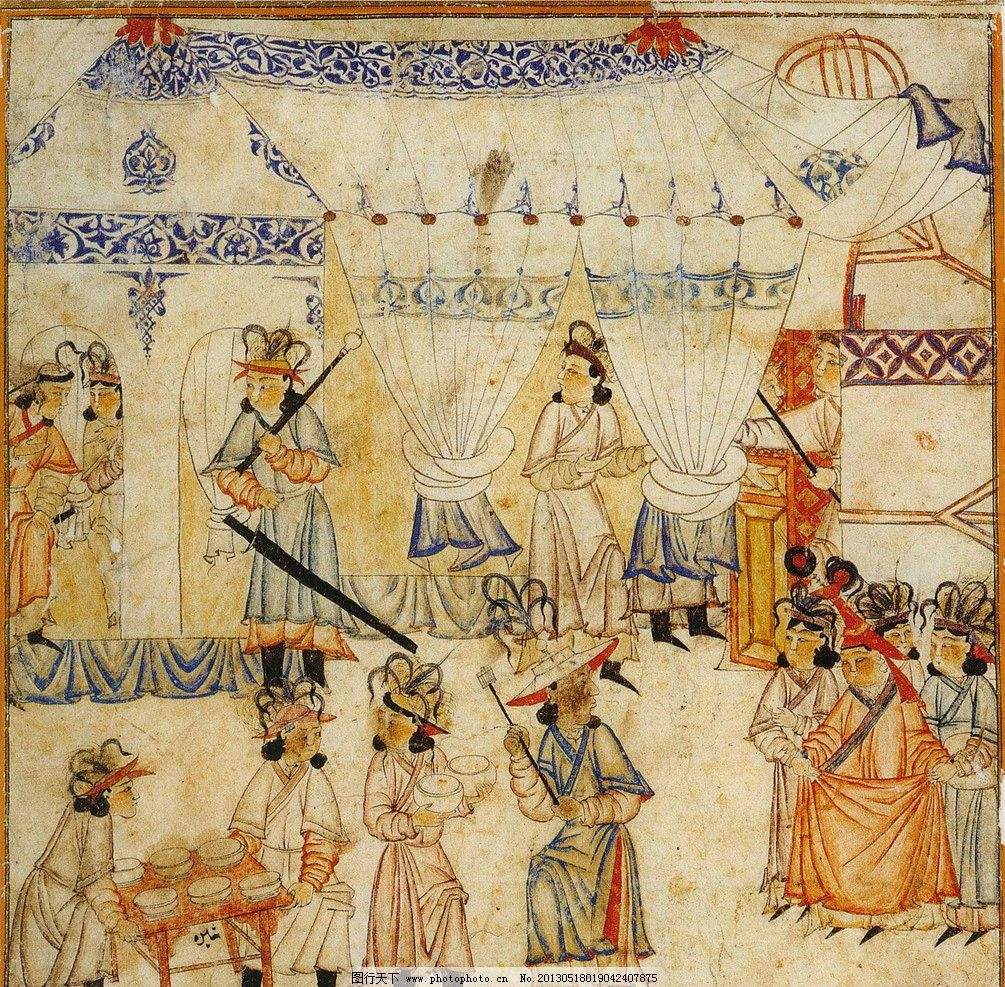 图行天下 www.photophoto.cn No.20130518019042407875